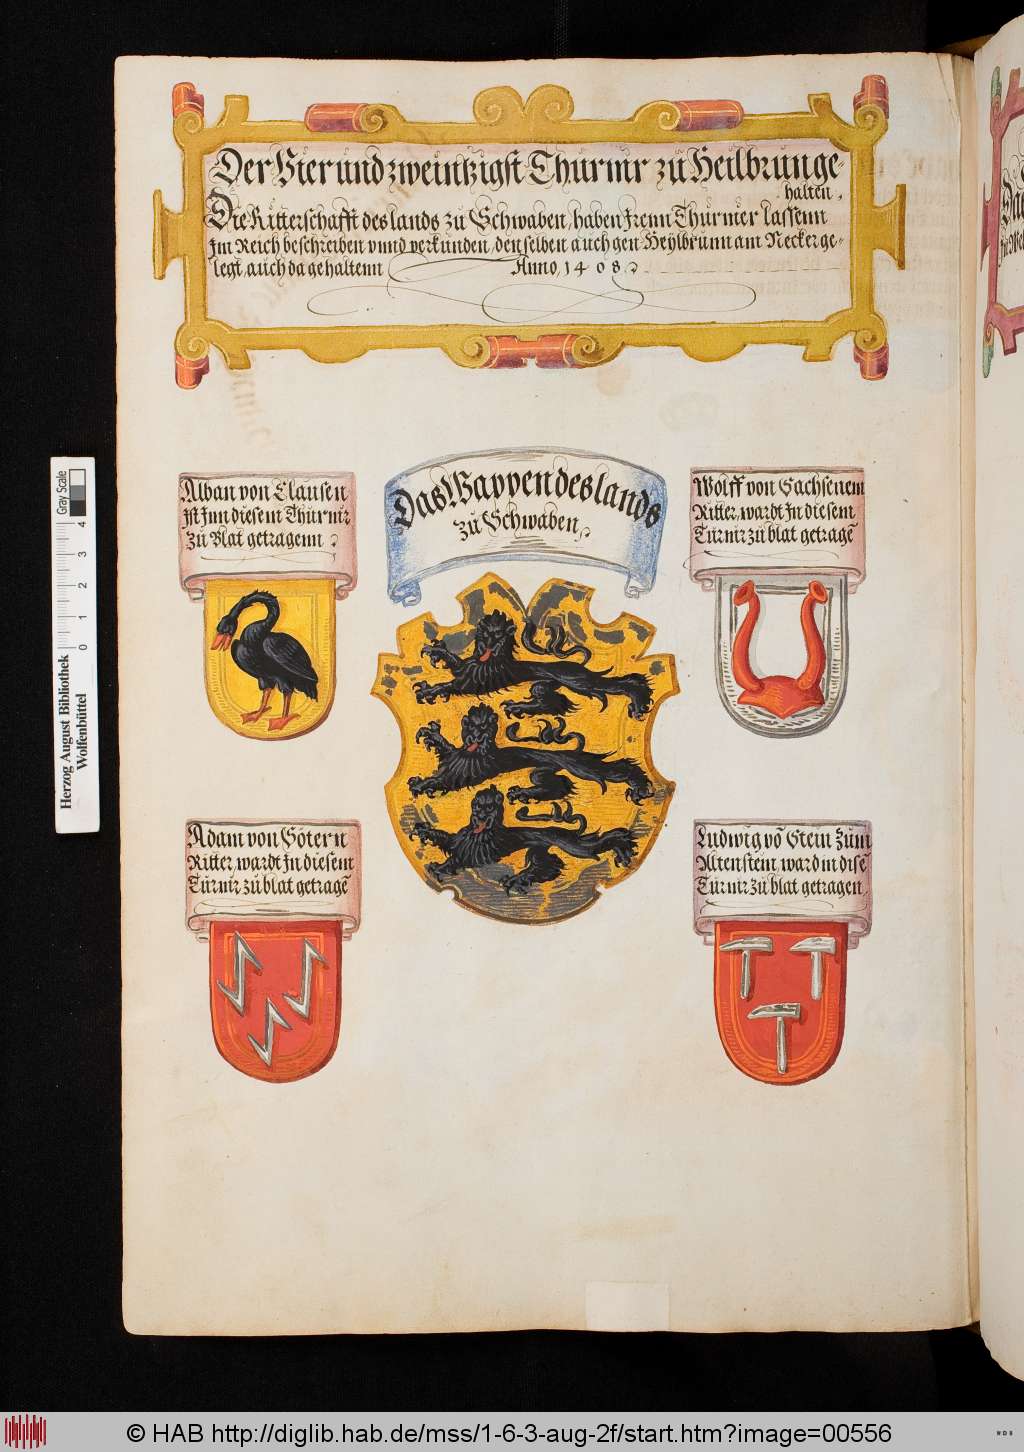 Der Vier und zweintzigst Thurnir zu Heilbrun ge-
halten.
Die Ritterschafft des lands zu Schwaben, haben Irenn Thurnier lassenn
Im Reich beschreiben vnnd verkunden, den selben auch gen Heylbrunn am Necker ge-
legt, auch da gehaltenn Anno, 1408.
Alban von Clausen
Ist Inn diesem Thurnir
zu Blat getragenn
Das Wappen des lands
zu Schwaben
Wolff von Sachsenem
Ritter, wardt In diesem
Turnir zu blat getragē
Adam von Sötern
Ritter, wardt In diesem
Turnir zu blat getragē
Ludwig vō Stein zum
Altenstein ward in disē
Turnir zu blat getragen
Herzog August Bibliothek
Wolfenbüttel
Gray Scale
0 1 2 3 4
© HAB http://diglib.hab.de/mss/1-6-3-aug-2f/start.htm?image=00556